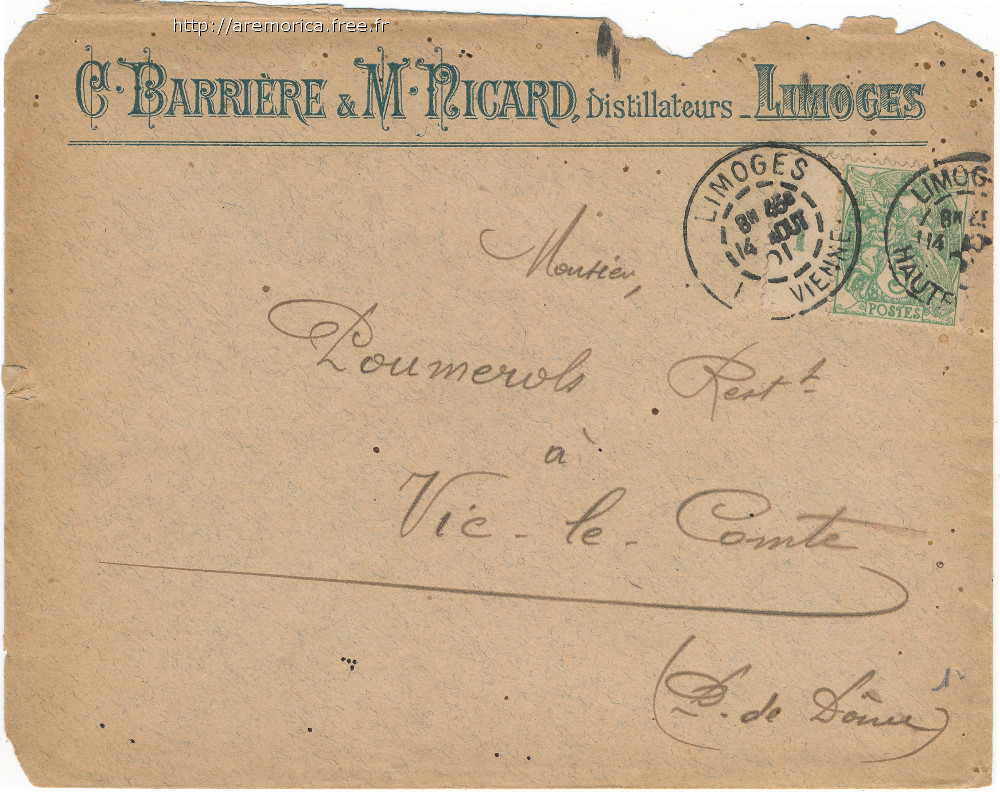 http://aremorica.free.fr
C. BARRIÈRE & M. NICARD, Distillateurs _ LIMOGES
LIMOGES
8H
14 AOUT
01
VIENNE
LIMOG
8H
14
HAUTE
5
POSTES
Monsieur,
Poumerols Rest t
à
Vic-le-Comte
(P. de Dôme)